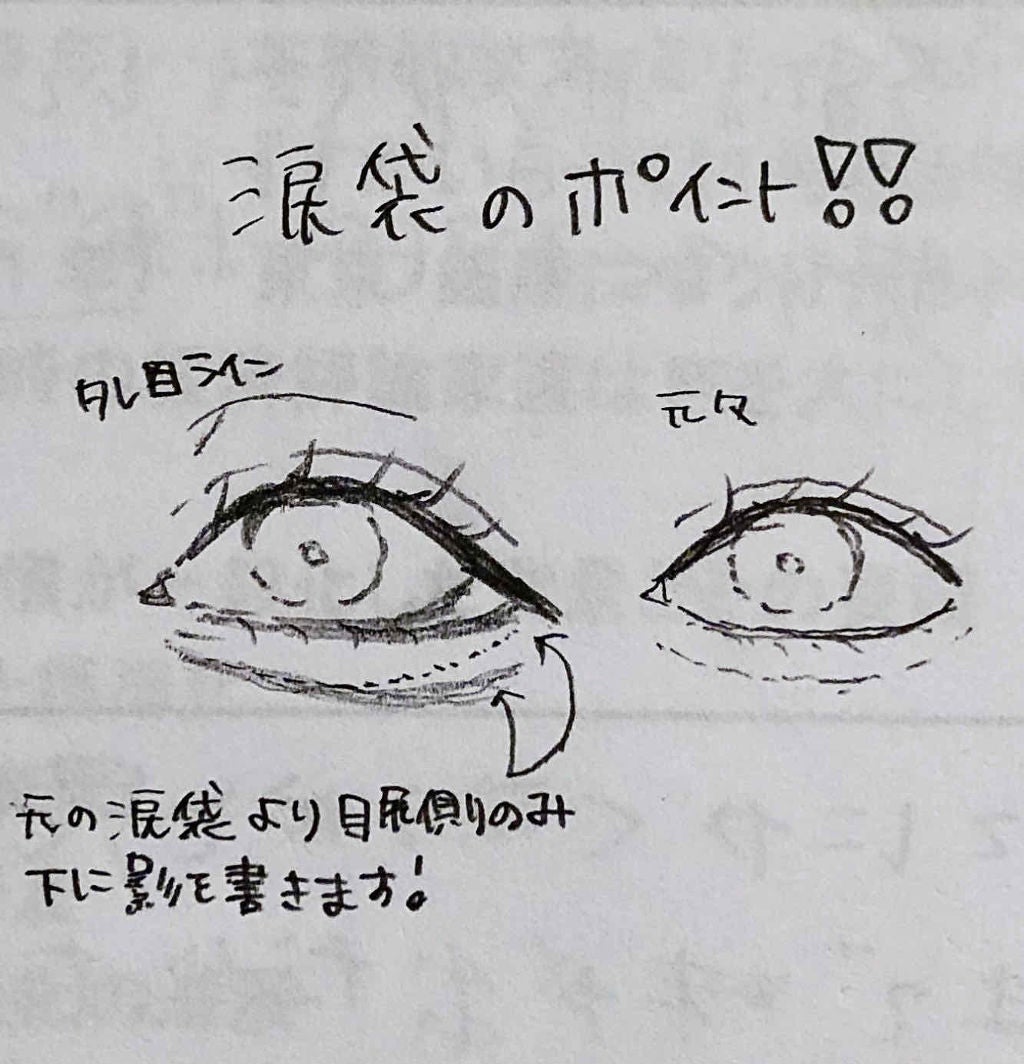 涙袋のポイント!!
タレ目ライン
元々
元の涙袋より目尻側りのみ
下に影を書きます!